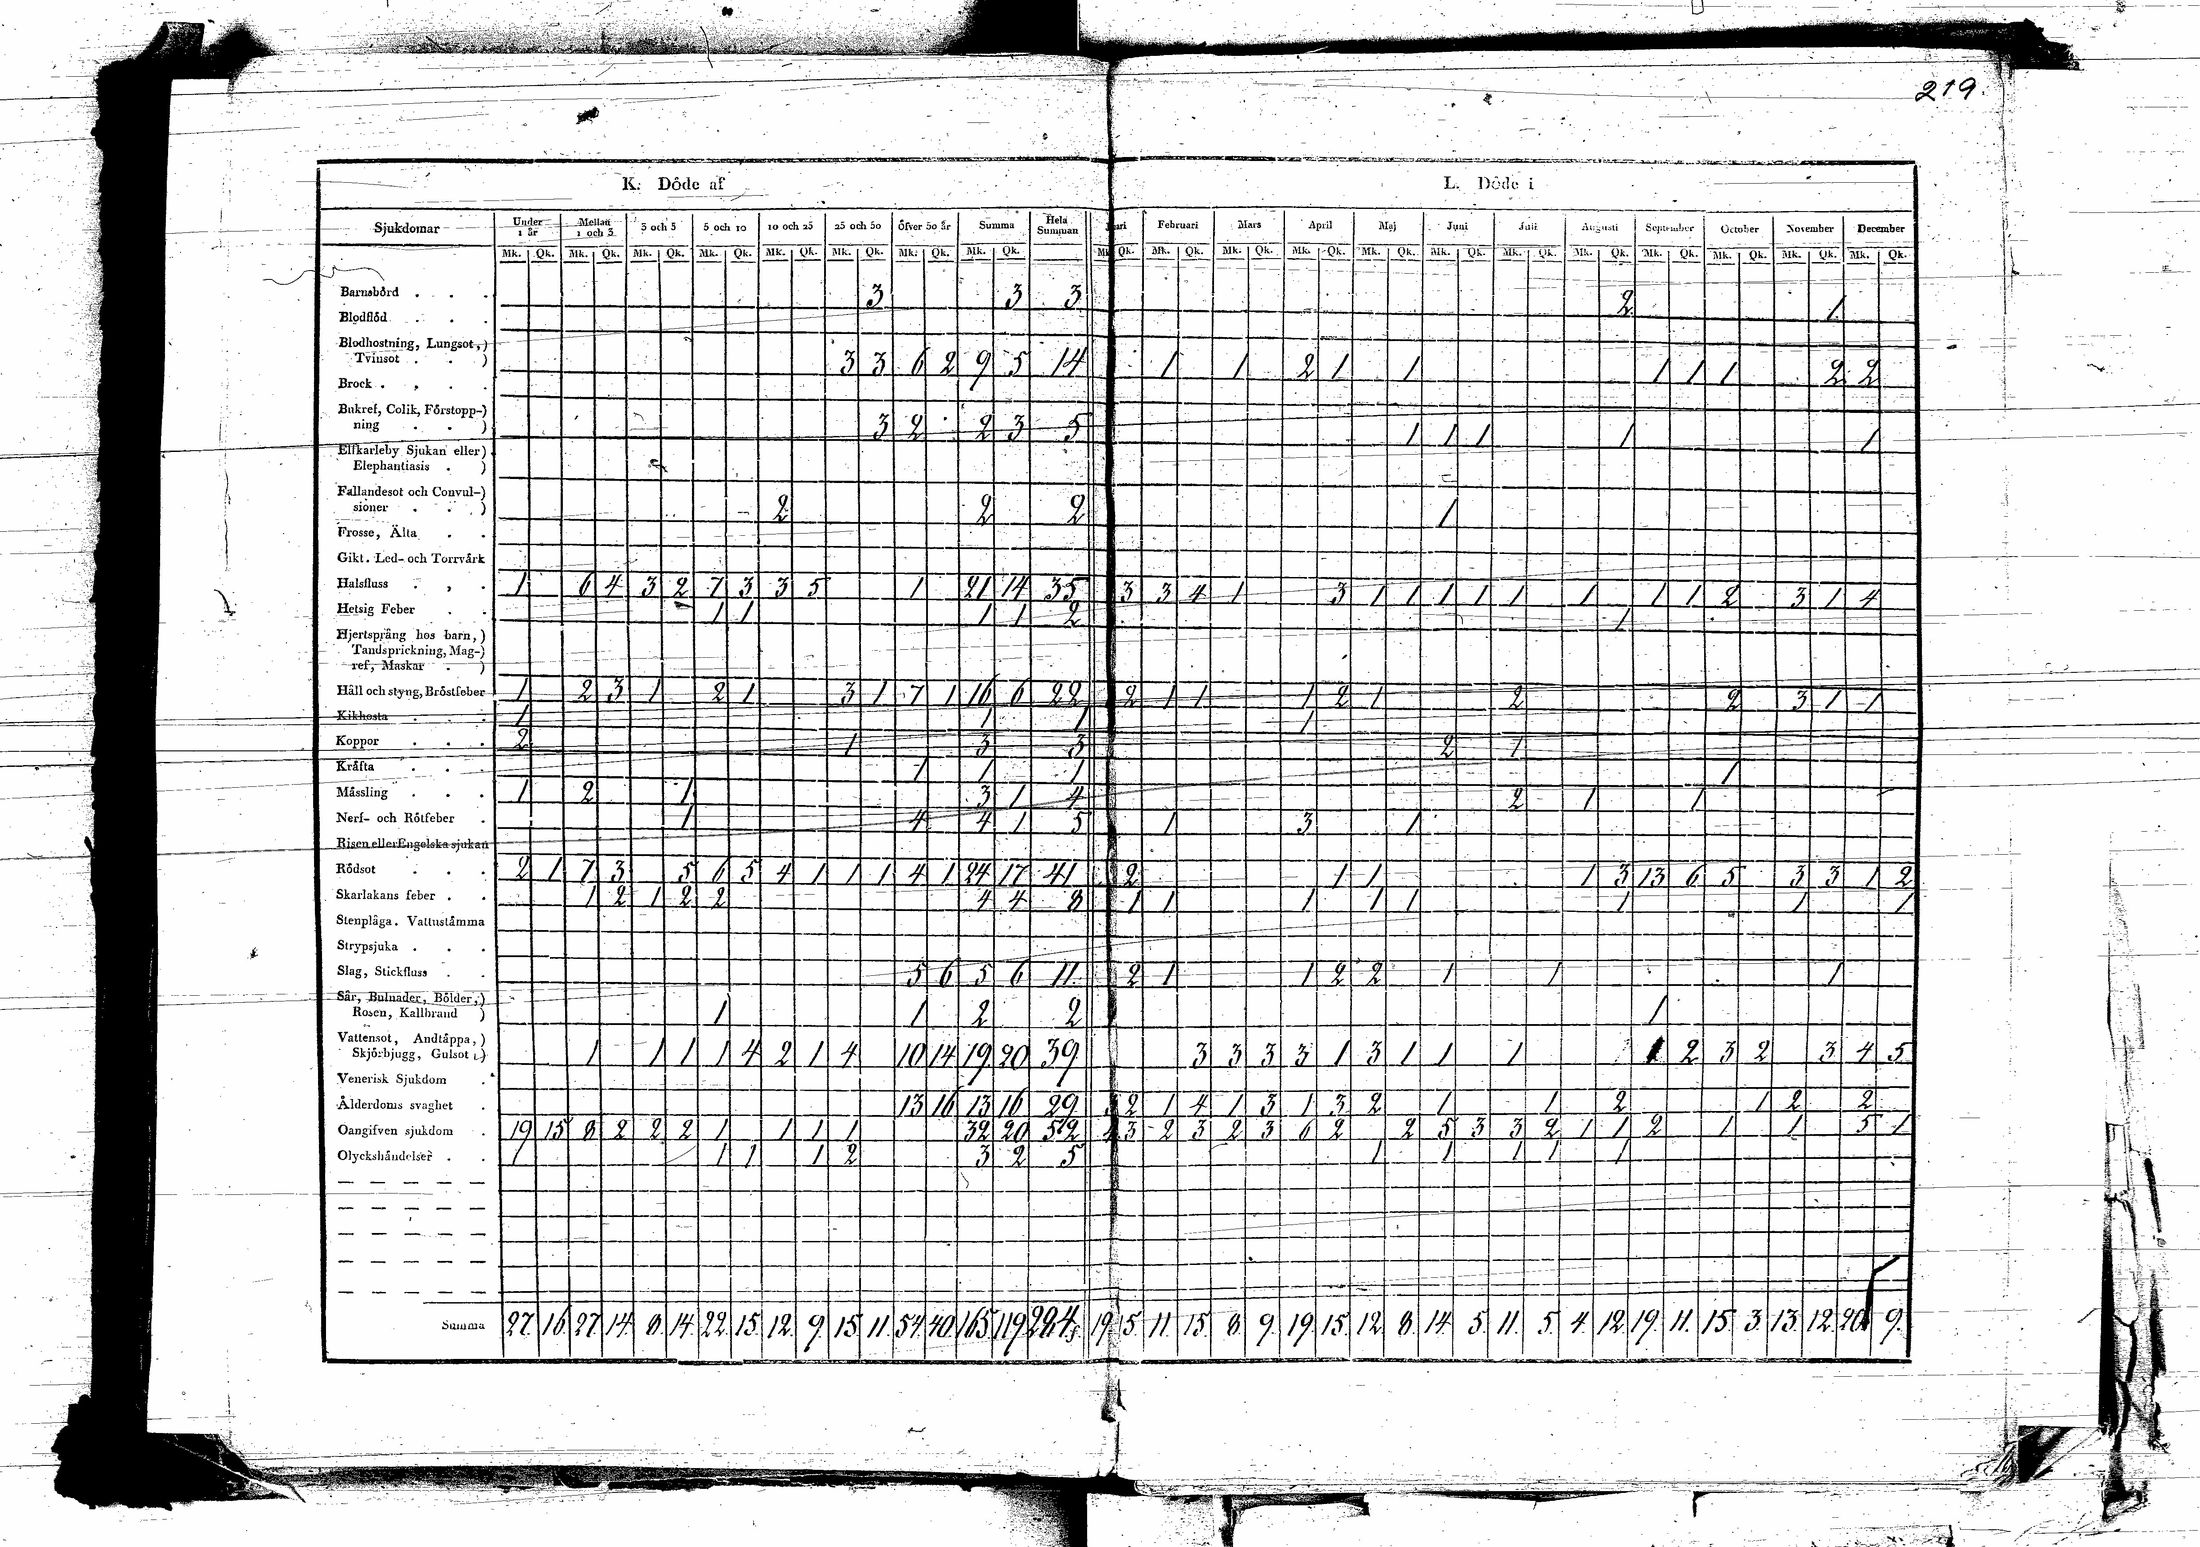 219.
K. Döde af L. Döde i
Sjukdomar Under 1 år Mellan 1 och 3 3 och 5 5 och 10 10 och 25 25 och 50 Öfver 50 år Summa Hela Summan Februari Mars April Maj Juni Juli Augusti September October November December
Mk. Qk. Mk. Qk. Mk. Qk. Mk. Qk. Mk. Qk. Mk. Qk. Mk. Qk. Mk. Qk. Mk. Qk. Mk. Qk. Mk. Qk. Mk. Qk. Mk. Qk. Mk. Qk. Mk. Qk. Mk. Qk. Mk. Qk. Mk. Qk. Mk. Qk. Mk. Qk.
Barnsbörd . . . 3 3 3 2 1
Blodflöd . . .
Blodhostning, Lungsot,)
Tvinsot . . ) 3 3 6 2 9 5 14 1 1 2 1 1 1 1 1 2 2
Brock . , . .
Bukref, Colik, Förstopp-)
ning . . ) 3 2 2 3 5 1 1 1 1 1
Elfkarleby Sjukan eller)
Elephantiasis . )
Fallandesot och Convul-)
sioner . . ) 2 2 2 1
Frosse, Älta . .
Gikt. Led- och Torrvärk
Halsfluss . , . 1 6 4 3 2 7 3 3 5 1 21 14 35 3 3 4 1 3 1 1 1 1 1 1 1 1 2 3 1 4
Hetsig Feber . . 1 1 1 1 2 1
Hjertsprång hos barn,)
Tandsprickning, Mag-)
ref, Maskar . )
Håll och styng, Bröstfeber 1 2 3 1 2 1 3 1 7 1 16 6 22 2 1 1 1 2 1 2 2 3 1 1
Kikhosta . . . 1 1 1 1
Koppor . . . 2 1 3 3 2 1
Kräfta . . . 1 1 1 1
Mässling . . . 1 2 1 3 1 4 2 1 1
Nerf- och Rötfeber . 1 4 4 1 5 1 3 1
Risen eller Engelska sjukan
Rödsot . . . 2 1 7 3 5 6 5 4 1 1 1 4 1 24 17 41 2 1 1 1 3 13 6 5 3 3 1 2
Skarlakans feber . . 1 2 1 2 2 4 4 8 1 1 1 1 1 1 1 1
Stenplåga. Vattustämma
Strypsjuka . . .
Slag, Stickfluss . . 5 6 5 6 11. 2 1 1 2 2 1 1 1
Sår, Bulnader, Bölder,)
Rosen, Kallbrand ) 1 1 2 2 1
Vattensot, Andtäppa,)
Skjörbjugg, Gulsot .) 1 1 1 1 4 2 1 4 10 14 19 20 39 3 3 3 3 1 3 1 1 1 1 2 3 2 3 4 5
Venerisk Sjukdom .
Ålderdoms svaghet . 13 16 13 16 29 2 1 4 1 3 1 3 2 1 1 2 1 2 2
Oangifven sjukdom . 19 15 8 2 2 2 1 1 1 1 32 20 52 3 2 3 2 3 6 2 2 5 3 3 2 1 1 2 1 1 5 1
Olyckshändelser . . 1 1 1 1 2 3 2 5 1 1 1 1 1
Summa 27. 16 27. 14. 8. 14. 22. 15. 12. 9. 15. 11. 54. 40. 165. 119. 284. 19. 15. 11. 15. 8. 9. 19. 15. 12. 8. 14. 5. 11. 5. 4. 12. 19. 11. 15. 3. 13. 12. 20. 9.